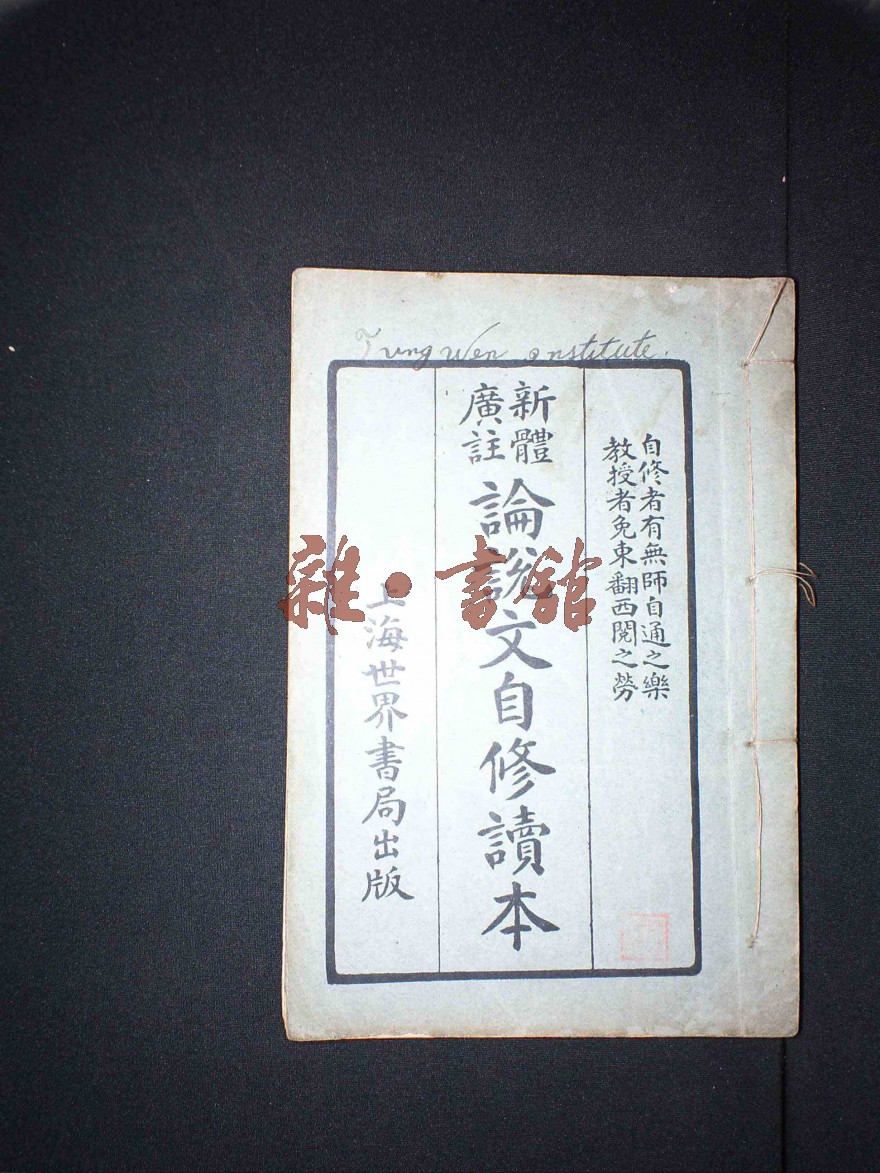 Tung Wen Institute.
自修者有無師自通之樂
教授者免東翻西閱之勞
新體
廣註
論說文自修讀本
上海世界書局出版
雜·書館